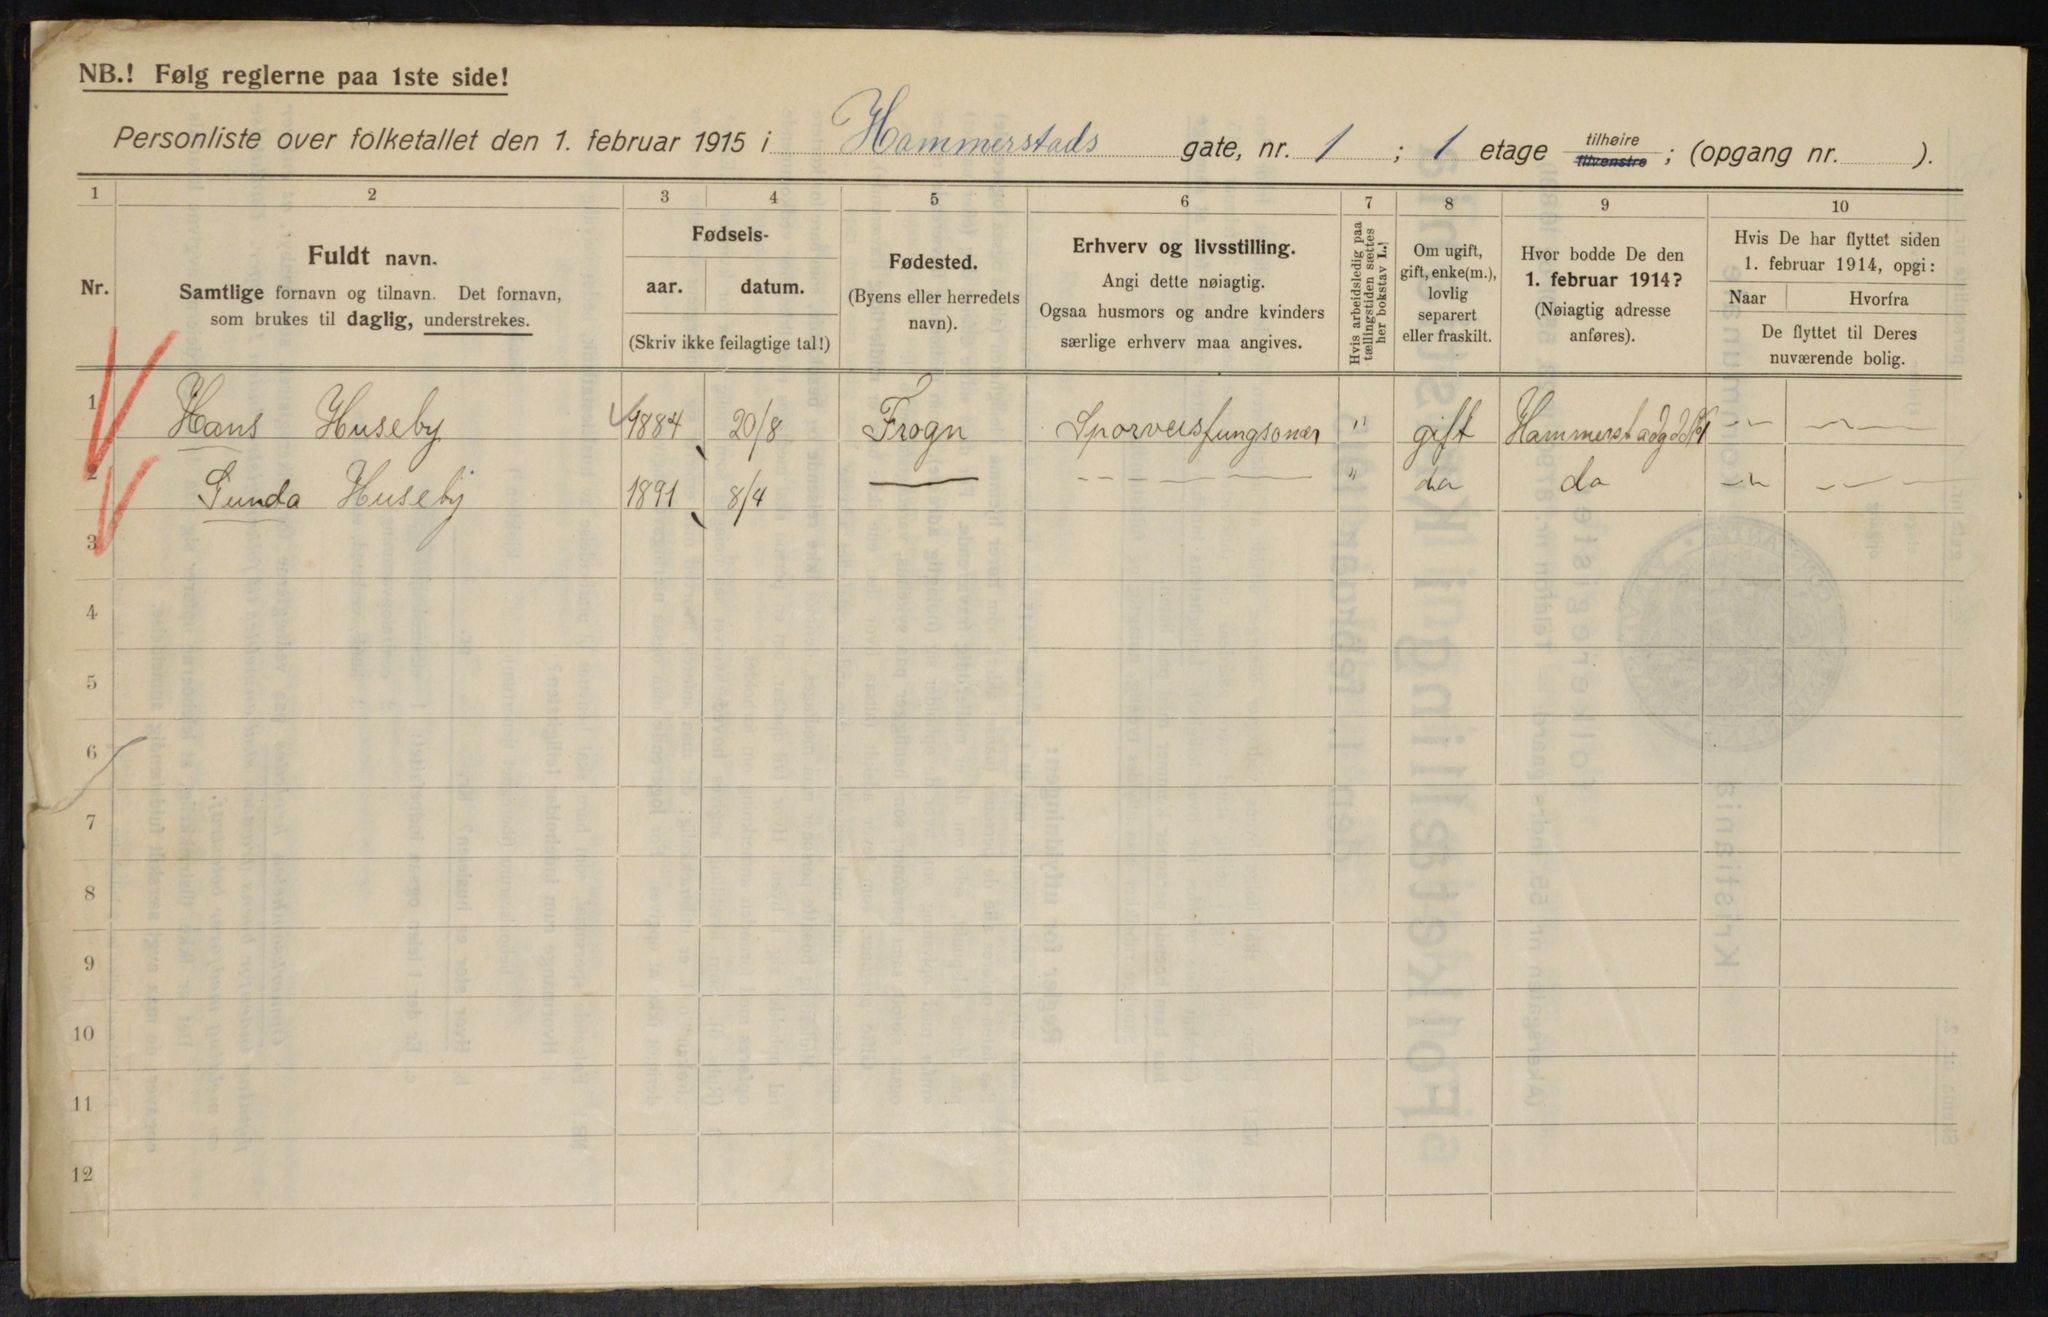 NB.! Følg reglerne paa 1ste side!
Personliste over folketallet den 1. februar 1915 i Hammerstads gate, nr. 1 ; 1 etage tilhøire tilvenstre ; (opgang nr. ).
1 2 3 4 5 6 7 8 9 10
Nr.
Fuldt navn.
Samtlige fornavn og tilnavn. Det fornavn,
som brukes til daglig, understrekes.
Fødsels-
aar. datum.
(Skriv ikke feilagtige tal!)
Fødested.
(Byens eller herredets
navn).
Erhverv og livsstilling.
Angi dette nøiagtig.
Ogsaa husmors og andre kvinders
særlige erhverv maa angives.
Hvis arbeidsledig paa
tællingstiden sættes
her bokstav L.!
Om ugift,
gift, enke(m.),
lovlig
separert
eller fraskilt.
Hvor bodde De den
1. februar 1914?
(Nøiagtig adresse
anføres).
Hvis De har flyttet siden
1. februar 1914, opgi:
Naar Hvorfra
De flyttet til Deres
nuværende bolig.
1 Hans Huseby 1884 20/8 Frogn Sporveisfungsonær " gift
2 Gunda Huseby 1891 8/4 — — — — " do do
3
4
5
6
7
8
9
10
11
12